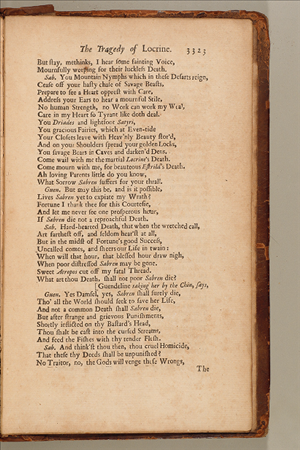 The Tragedy of Locrine. 3323
But stay, methinks, I hear some fainting Voice,
Mournfully weeping for their luckless Death.
Sab. You Mountain Nymphs which in these Desarts reign,
Cease off your hasty chase of Savage Beasts,
Prepare to see a Heart opprest with Care,
Address your Ears to hear a mournful Stile,
No human Strength, no Work can work my Weal,
Care in my Heart so Tyrant like doth deal.
You Driades and lightfoot Satyri,
You gracious Fairies, which at Even-tide
Your Closets leave with Heav'nly Beauty stor'd,
And on your Shoulders spread your golden Locks,
You savage Bears in Caves and darken'd Dens,
Come wail with me the martial Locrine's Death.
Come mourn with me, for beauteous Estrild's Death.
Ah loving Parents little do you know,
What Sorrow Sabren suffers for your thrall.
Guen. But may this be, and is it possible,
Lives Sabren yet to expiate my Wrath?
Fortune I thank thee for this Courtesie,
And let me never see one prosperous hour,
If Sabren die not a reproachful Death.
Sab. Hard-hearted Death, that when the wretched call,
Art furthest off, and seldom hear'st at all,
But in the midst of Fortune's good Success,
Uncalled comes, and sheers our Life in twain:
When will that hour, that blessed hour draw nigh,
When poor distressed Sabren may be gone.
Sweet Atropos cut off my fatal Thread.
What art thou Death, shall not poor Sabren die?
[Guendeline taking her by the Chin, says,
Guen. Yes Damsel, yes, Sabren shall surely die,
Tho' all the World should seek to save her Life,
And not a common Death shall Sabren die,
But after strange and grievous Punishments,
Shortly inflicted on thy Bastard's Head,
Thou shalt be cast into the cursed Streams,
And feed the Fishes with thy tender Flesh.
Sab. And think'st thou then, thou cruel Homicide,
That these thy Deeds shall be unpunished?
No Traitor, no, the Gods will venge these Wrongs,
The